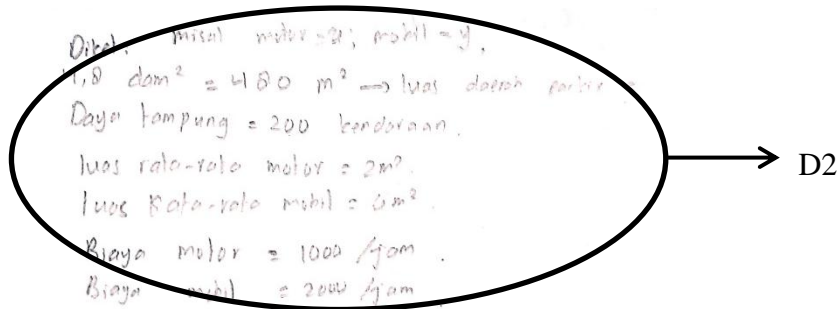 Diket. misal motor = x; mobil = y.
4,8 dam² = 480 m² → luas daerah parkir
Daya tampung = 200 kendaraan.
luas rata-rata motor = 2m².
luas Rata-rata mobil = 6m².
Biaya motor = 1000 /jam.
Biaya mobil = 2000 /jam
D2